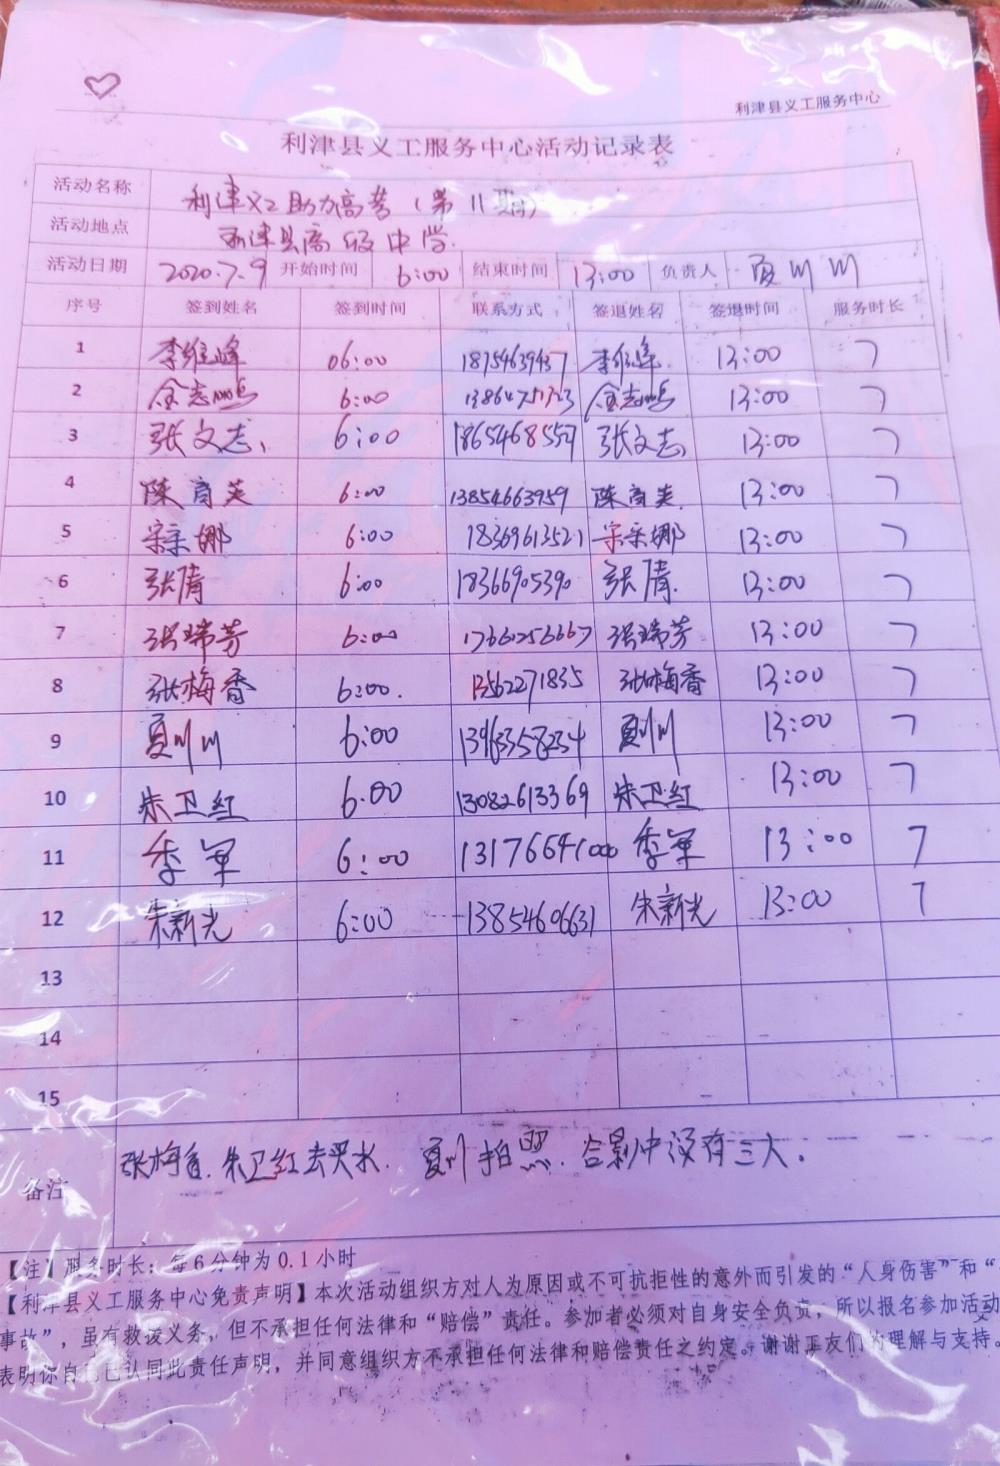 利津县义工服务中心
利津县义工服务中心活动记录表
活动名称 利津义工助力高考（第11期）
活动地点 利津县高级中学
活动日期 2020.7.9 开始时间 6:00 结束时间 13:00 负责人 夏川川
序号 签到姓名 签到时间 联系方式 签退姓名 签退时间 服务时长
1 李维峰 06:00 18754639437 李维峰 13:00 7
2 6:00 13:00 7
3 张文志 6:00 张文志 13:00 7
4 陈育英 6:00 13854663959 陈育英 13:00 7
5 宋采娜 6:00 18369613521 宋采娜 13:00 7
6 张倩 6:00 18366905390 张倩 13:00 7
7 张瑞芳 6:00 17661256667 张瑞芳 13:00 7
8 张梅香 6:00. 13562271835 张梅香 13:00 7
9 夏川川 6:00 13963358234 夏川川 13:00 7
10 朱卫红 6:00 13082613369 朱卫红 13:00 7
11 季军 6:00 13176641000 季军 13:00 7
12 朱新光 6:00 13854606631 朱新光 13:00 7
13
14
15
备注 张梅香.朱卫红去买水.夏川拍照.合影中没有三人.
【注】服务时长：每6分钟为0.1小时
【利津县义工服务中心免责声明】本次活动组织方对人为原因或不可抗拒性的意外而引发的“人身伤害”和“
事故”，虽有救援义务，但不承担任何法律和“赔偿”责任。参加者必须对自身安全负责，所以报名参加活动
表明你自己已认同此责任声明，并同意组织方不承担任何法律和赔偿责任之约定。谢谢工友们的理解与支持。